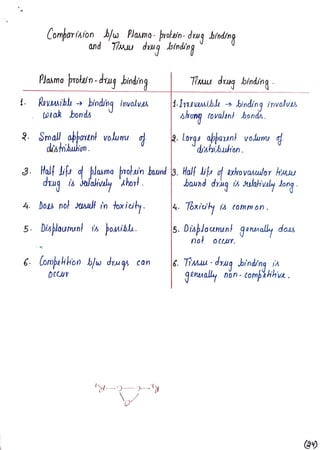 Comparision b/w Plasma-protein-drug binding
and Tissue drug binding
Plasma protein-drug binding
Tissue drug binding.
1. Reversible → binding involves
weak bonds
1. Irreversible → binding involves
strong covalent bonds.
2. Small apparent volume of
distribution.
2. Large apparent volume of
distribution.
3. Half life of plasma protein bound
drug is relatively short.
3. Half life of extravascular tissue
bound drug is relatively long.
4. Does not result in toxicity.
4. Toxicity is common.
5. Displacement is possible.
5. Displacement generally does
not occur.
6. Competition b/w drugs can
occur
6. Tissue-drug binding is
generally non-competitive.
(24)